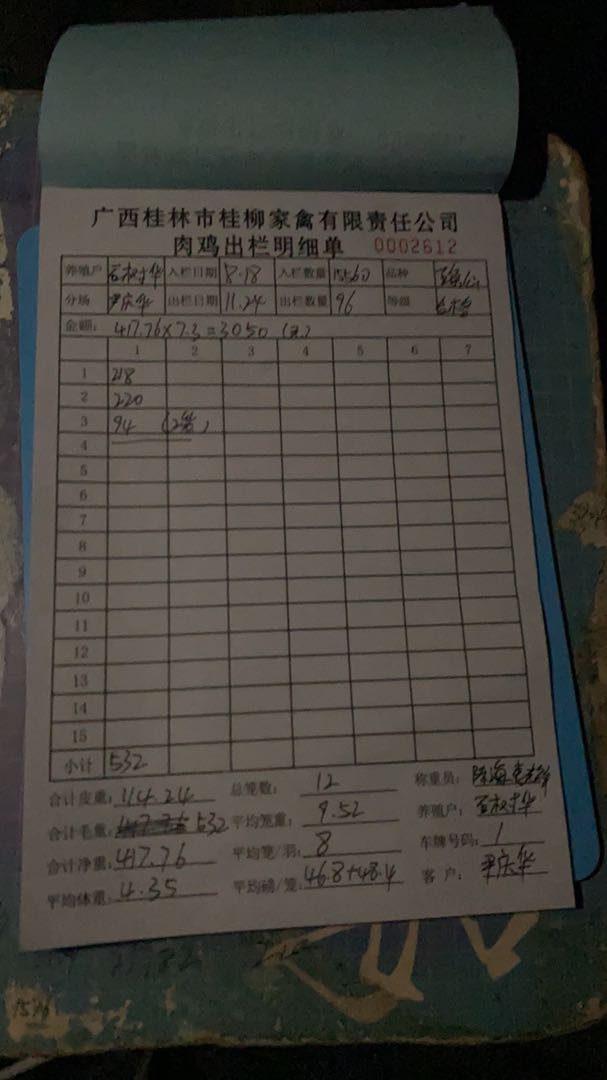 广西桂林市桂柳家禽有限责任公司
肉鸡出栏明细单 0002612
养殖户 入栏日期 8.18 入栏数量 品种
分场 尹庆华 出栏日期 11.24 出栏数量 96 等级
金额: 417.76×7.3=3050 (元)
1 2 3 4 5 6 7
1 218
2 220
3 94 (2笼)
4
5
6
7
8
9
10
11
12
13
14
15
小计 532
合计皮重: 114.24 总笼数: 12 称重员:
合计毛重: 532 平均笼重: 9.52 养殖户:
合计净重: 417.76 平均笼/羽: 8 车牌号码: 1
平均体重: 4.35 平均磅/笼: 46.8+48.4 客户: 尹庆华